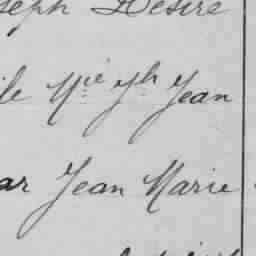 seph Désiré
ile Mie Jh Jean
ar Jean Marie